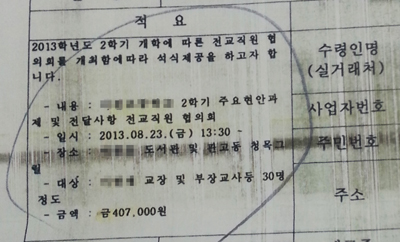 적 요
2013학년도 2학기 개학에 따른 전교직원 협
의회를 개최함에따라 석식제공을 하고자 합
니다.
수령인명
(실거래처)
- 내용 : 2학기 주요현안과
제 및 전달사항 전교직원 협의회
사업자번호
- 일시 : 2013.08.23.(금) 13:30 ~
- 장소 도서관 및 청목그
주민번호
- 대상 : 교장 및 부장교사등 30명
정도
주소
- 금액 : 금407,000원